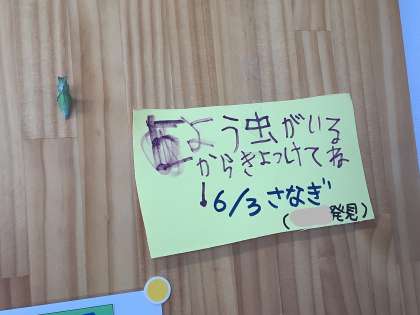 よう虫がいる
からきよつけてね
↓6/3 さなぎ
(発見)